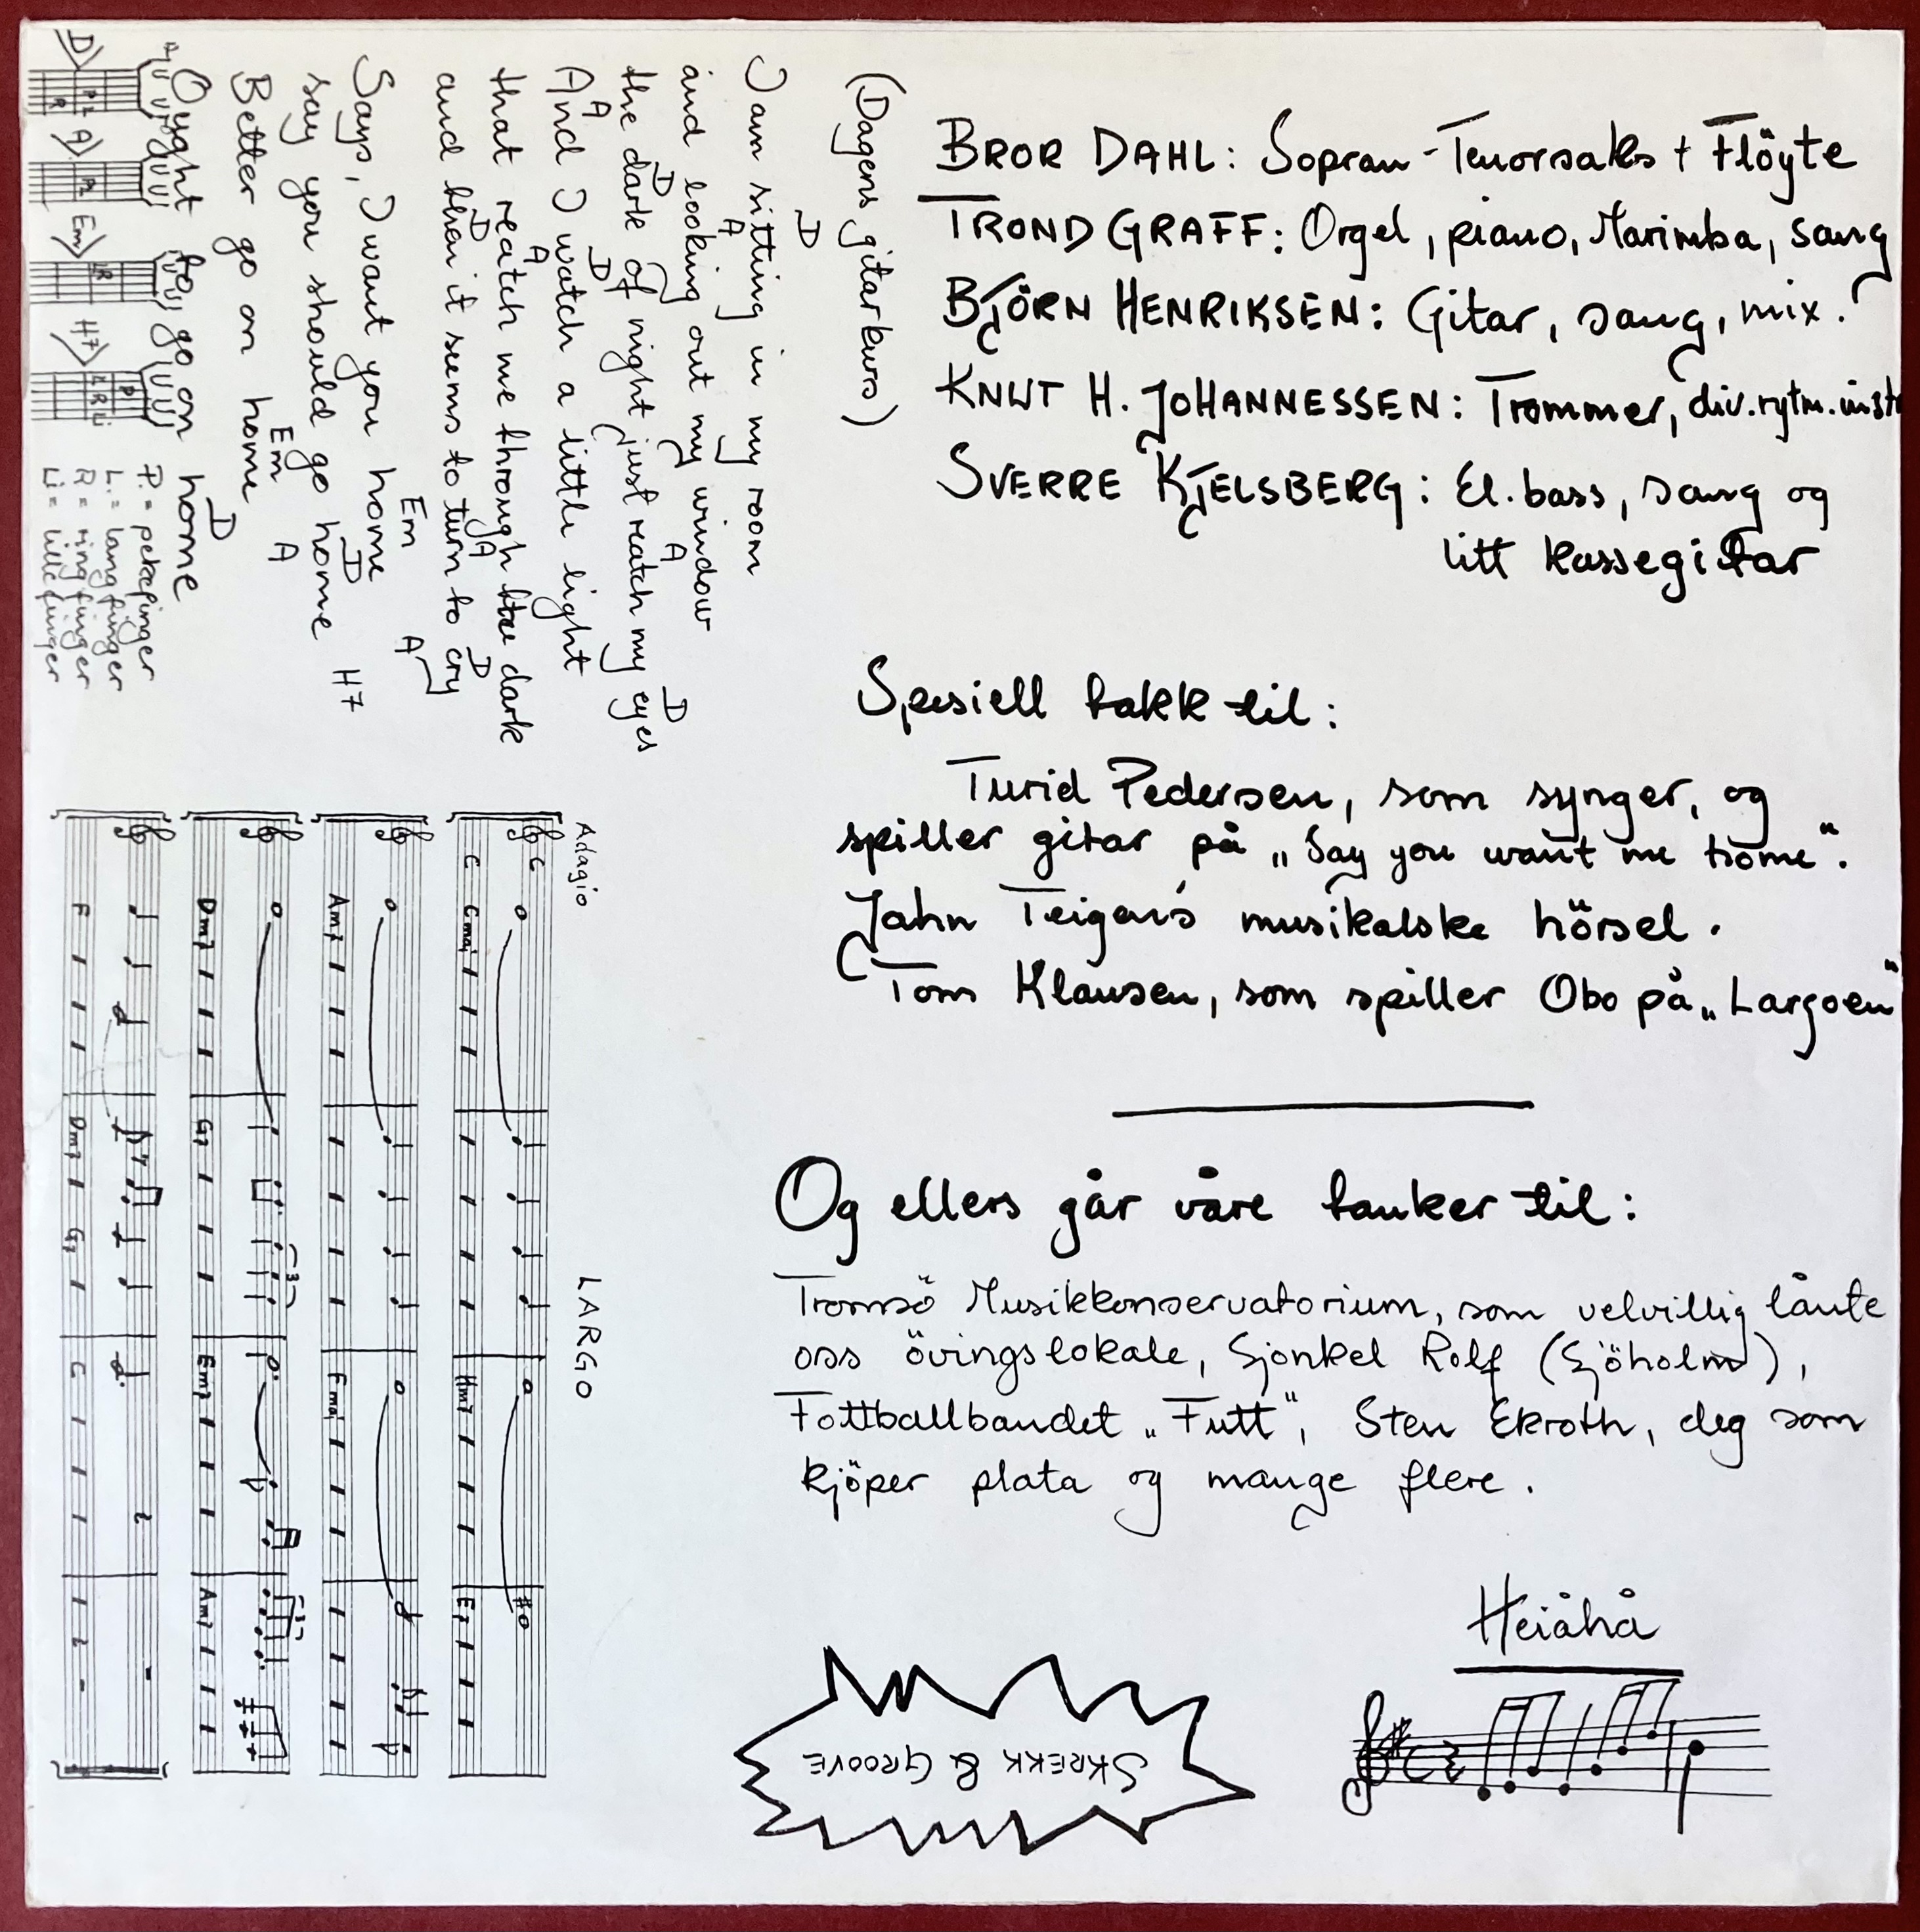 BROR DAHL: Sopran-Tenorsaks + Flöyte
TROND GRAFF: Orgel, piano, Marimba, sang
BJÖRN HENRIKSEN: Gitar, sang, mix.
KNUT H. JOHANNESSEN: Trommer, div. rytm. instr
SVERRE KJELSBERG: El. bass, sang og
litt kassegitar
Spesiell takk til:
Turid Pedersen, som synger, og
spiller gitar på „Say you want me home".
Jahn Teigen's musikalske hörsel.
Tom Klausen, som spiller Obo på „Largoen"
Og ellers går våre tanker til:
Tromsö Musikkonservatorium, som velvillig lånte
oss övingslokale, Sjonkel Rolf (Sjöholm),
Fottballbandet „Futt", Sten Ekroth, deg som
kjöper plata og mange flere.
Heiåhå
SKREKK & GROOVE
(Dagens gitarkurs)
D
I am sitting in my room
A
and looking out my window
D A D
the dark of night just reatch my eyes
A D
And I watch a little light
A
that reatch me through the dark
D A D
and then it seems to turn to cry
Em A
Says, I want you home
D H7
say you should go home
Em A
Better go on home
D
Ought to go on home
D A Em H7
P. = pekefinger
L. = langfinger
R = ringfinger
Li = lillefinger
Adagio LARGO
C Cmaj Hm7 E7
Am7 Fmaj
Dm7 G7 Em7 Am7
F Dm7 G7 C